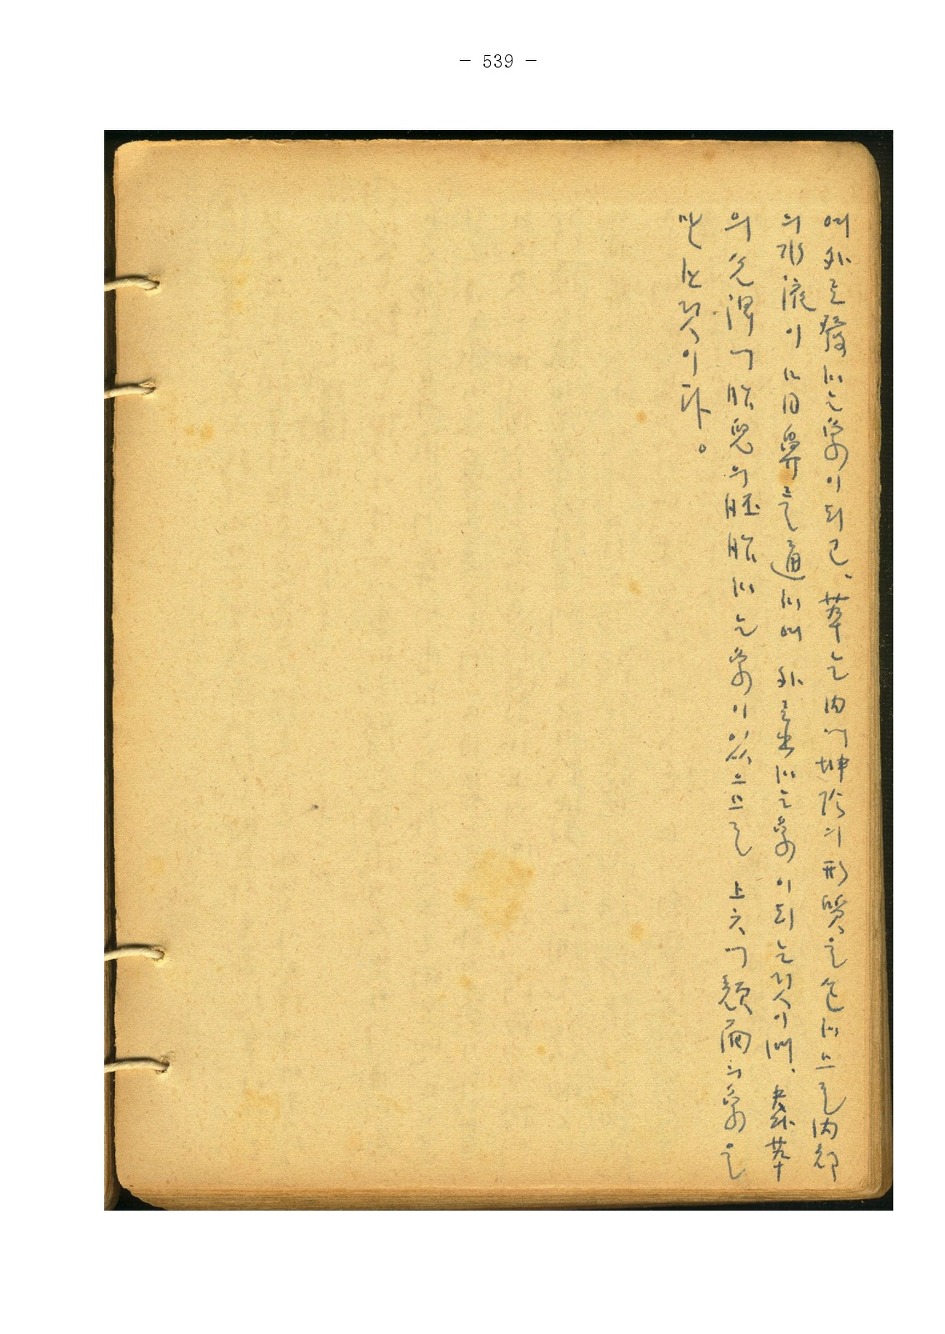 - 539 -
여 外로 發하는 象이 되고, 萃는 內에 坤陰의 形質을 包하므로 內部
의 水液이 口目鼻를 通하여 外로 出하는 象이 되는 것이며, 또
의 兌澤에 胎兒의 胚胎하는 象이 있으므로 上六에 顔面의 象을
말한 것이다。